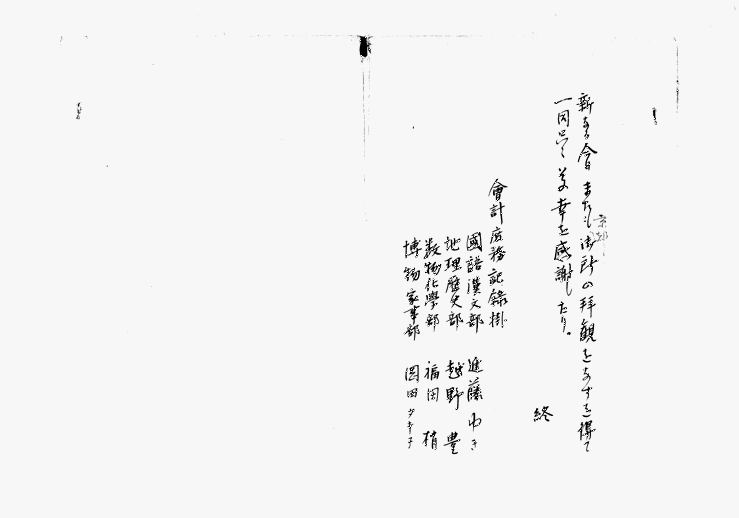 新なる會またも御所の拜觀をなすを得て
京都
一同其の幸を感謝したり。
終
會計庶務記錄掛
國語漢文部 進藤ゆき
地理歷史部 越野豊
數物化學部 福田梢
博物家事部 岡田タキ子